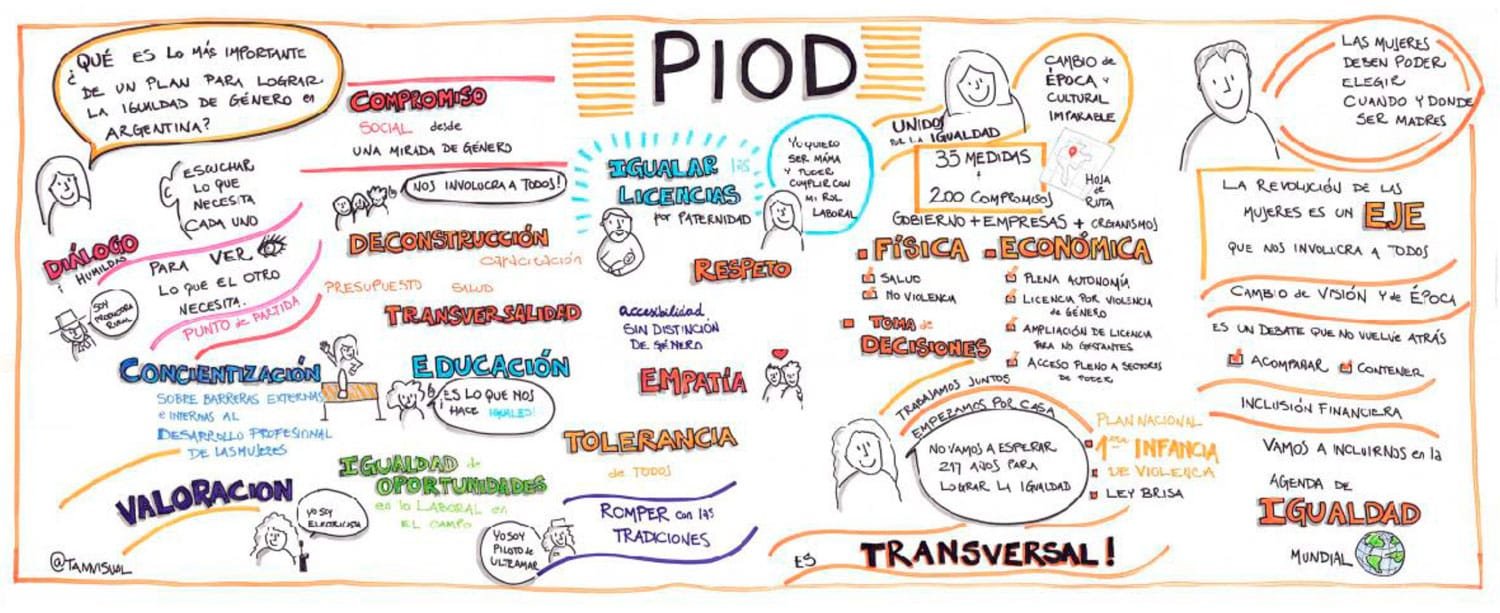 ¿QUÉ ES LO MÁS IMPORTANTE
DE UN PLAN PARA LOGRAR
LA IGUALDAD DE GÉNERO en
ARGENTINA?
COMPROMISO
SOCIAL desde
UNA MIRADA DE GÉNERO
NOS INVOLUCRA A TODOS!
ESCUCHAR
LO QUE
NECESITA
CADA UNO
DIÁLOGO
y HUMILDAD
PARA VER
LO QUE EL OTRO
NECESITA.
PUNTO de PARTIDA
SOY
PRODUCTORA
RURAL
DECONSTRUCCIÓN
CAPACITACIÓN
PRESUPUESTO SALUD
TRANSVERSALIDAD
CONCIENTIZACIÓN
SOBRE BARRERAS EXTERNAS
e INTERNAS AL
DESARROLLO PROFESIONAL
DE LAS MUJERES
EDUCACIÓN
¡ES LO QUE NOS
HACE IGUALES!
VALORACION
YO SOY
ELECTRICISTA
IGUALDAD de
OPORTUNIDADES
en lo LABORAL en
EL CAMPO
YO SOY
PILOTO de
ULTRAMAR
@TAMVISUAL
PIOD
IGUALAR las
LICENCIAS
por PATERNIDAD
YO QUIERO
SER MAMÁ
Y PODER
CUMPLIR CON
MI ROL
LABORAL
RESPETO
accesibilidad
SIN DISTINCIÓN
DE GÉNERO
EMPATÍA
TOLERANCIA
de TODOS
ROMPER con las
TRADICIONES
CAMBIO de
ÉPOCA Y
CULTURAL
IMPARABLE
UNIDOS
POR LA IGUALDAD
35 MEDIDAS
+
200 COMPROMISOS
HOJA
de
RUTA
GOBIERNO + EMPRESAS + ORGANISMOS
FÍSICA
SALUD
NO VIOLENCIA
TOMA de
DECISIONES
ECONÓMICA
PLENA AUTONOMÍA
LICENCIA POR VIOLENCIA
de GÉNERO
AMPLIACIÓN DE LICENCIA
PARA NO GESTANTES
ACCESO PLENO A SECTORES
DE PODER
TRABAJAMOS JUNTOS
EMPEZAMOS POR CASA
NO VAMOS A ESPERAR
217 AÑOS PARA
LOGRAR LA IGUALDAD
PLAN NACIONAL
1era INFANCIA
DE VIOLENCIA
LEY BRISA
ES TRANSVERSAL!
LAS MUJERES
DEBEN PODER
ELEGIR
CUANDO Y DONDE
SER MADRES
LA REVOLUCIÓN DE LAS
MUJERES ES UN EJE
QUE NOS INVOLUCRA A TODOS
CAMBIO de VISIÓN Y de ÉPOCA
ES UN DEBATE QUE NO VUELVE ATRÁS
ACOMPAÑAR CONTENER
INCLUSIÓN FINANCIERA
VAMOS A INCLUIRNOS en la
AGENDA DE
IGUALDAD
MUNDIAL